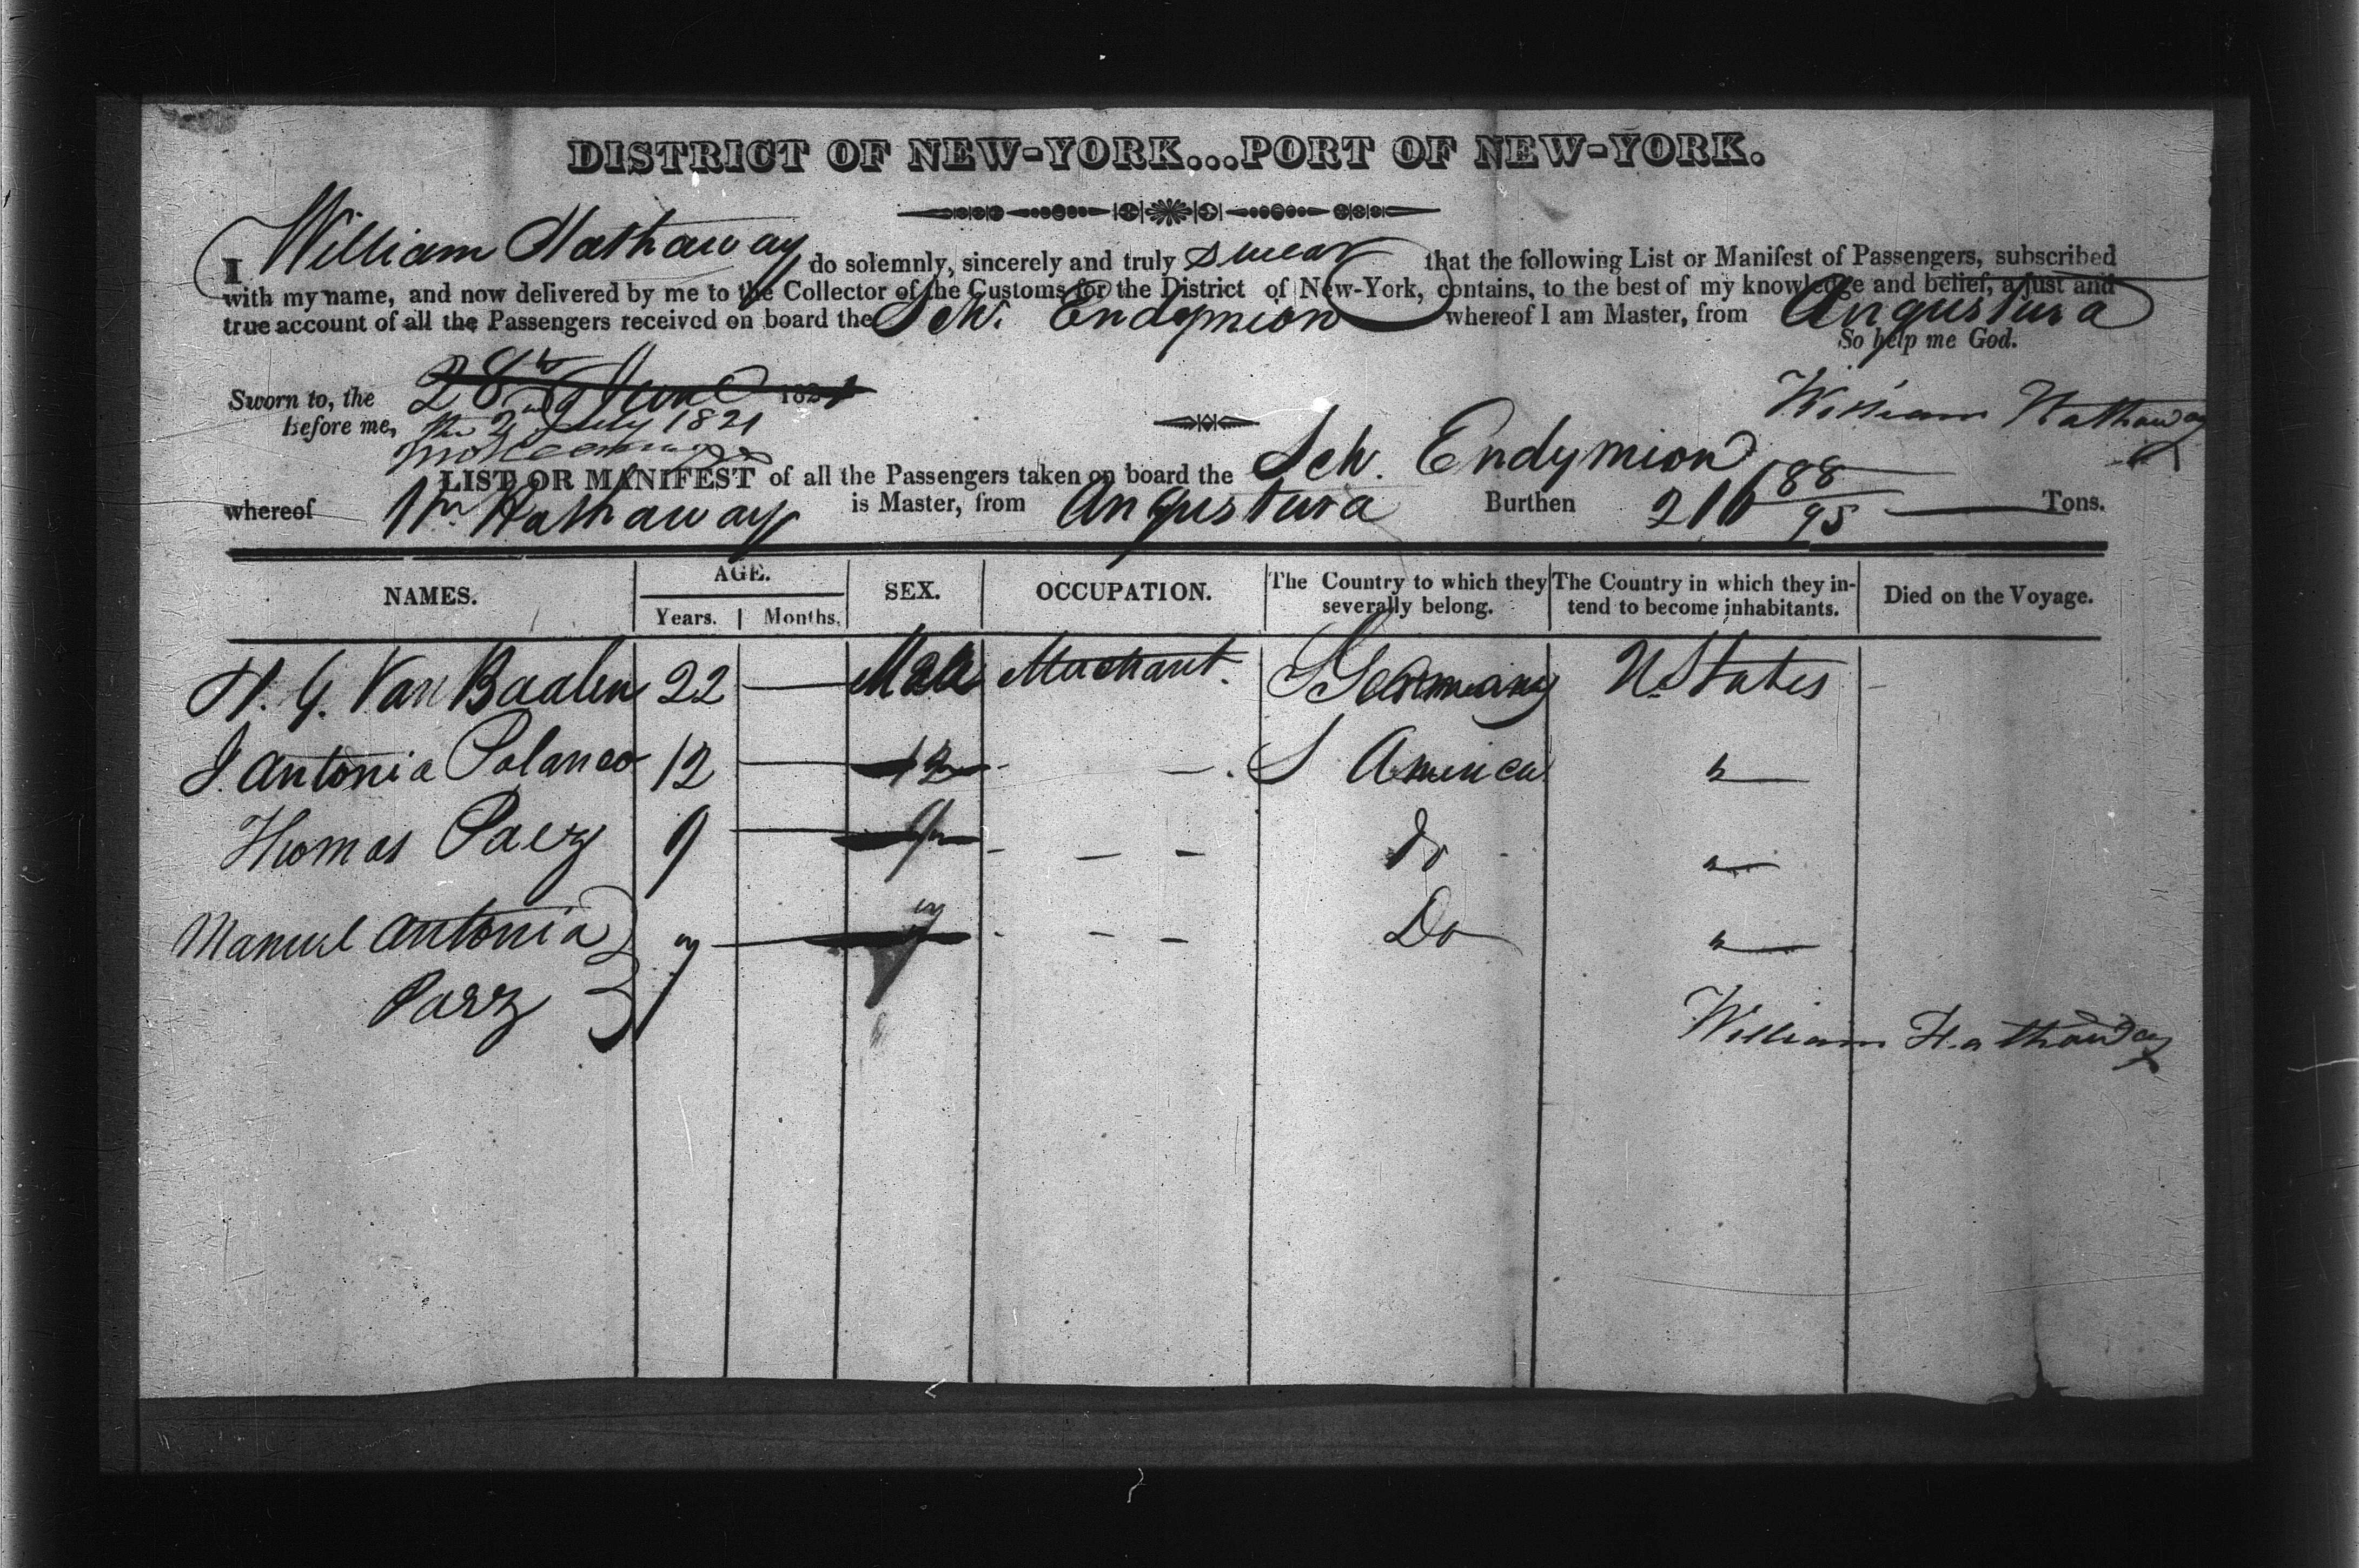 DISTRICT OF NEW-YORK...PORT OF NEW-YORK.
I William Hathaway do solemnly, sincerely and truly swear that the following List or Manifest of Passengers, subscribed
with my name, and now delivered by me to the Collector of the Customs for the District of New-York, contains, to the best of my knowledge and belief, a just and
true account of all the Passengers received on board the Sch. Endymion whereof I am Master, from Angustura
So help me God.
Sworn to, the 28th of June 1821
Before me, the 2nd July 1821
William Hathaway
LIST OR MANIFEST of all the Passengers taken on board the Sch. Endymion
whereof Wm Hathaway is Master, from Angustura Burthen 216 88/95 Tons.
NAMES. AGE. Years. Months. SEX. OCCUPATION. The Country to which they severally belong. The Country in which they intend to become inhabitants. Died on the Voyage.
H. G. Van Baalen 22 — Male Merchant. Germany U. States
J. Antonia Polanco 12 — 12 — S America "
Thomas Paez 9 — 9 — — do "
Manuel Antonia 7 — 7 — — Do "
Paez
William Hathaway